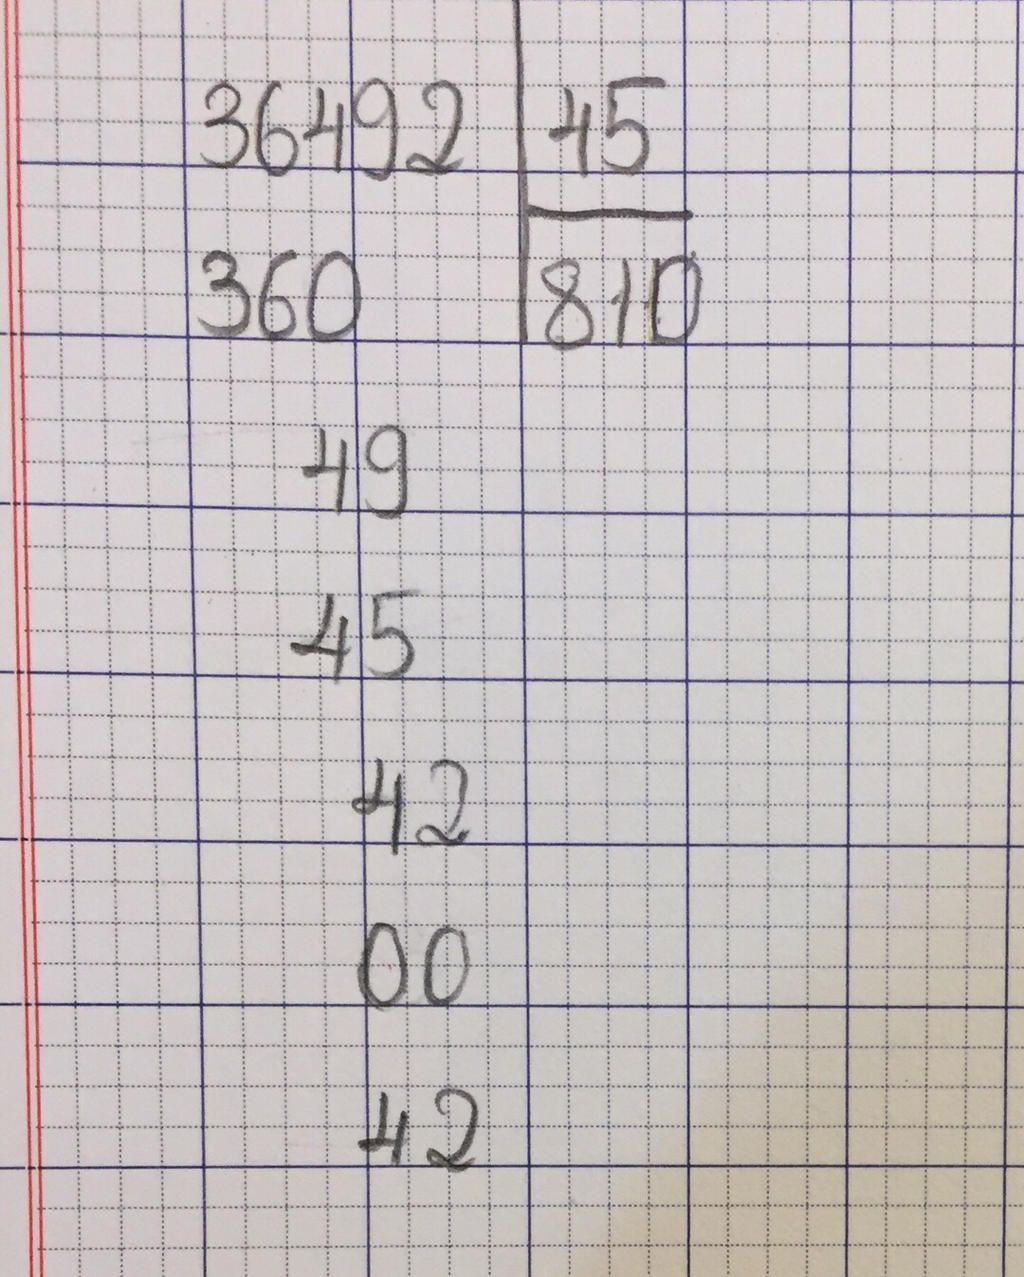 36492 45
360 810
49
45
42
00
42